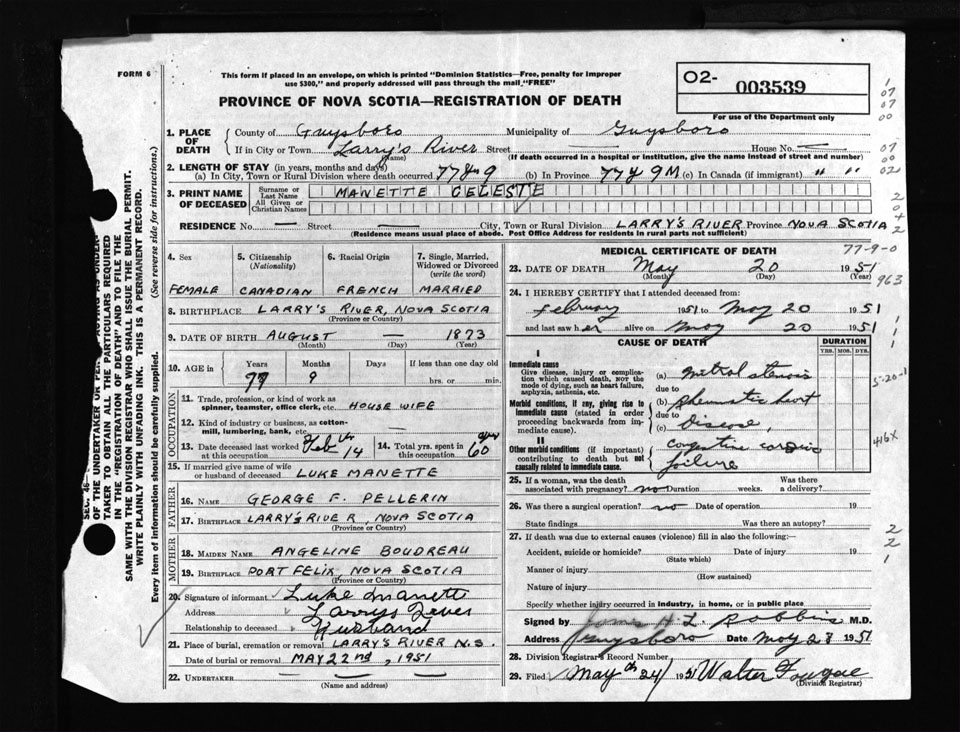 FORM 6
This form if placed in an envelope, on which is printed "Dominion Statistics—Free, penalty for improper
use $300," and properly addressed will pass through the mail "FREE"
PROVINCE OF NOVA SCOTIA—REGISTRATION OF DEATH
O2- 003539
For use of the Department only
1. PLACE OF DEATH County of Guysboro Municipality of Guysboro
If in City or Town Larry's River Street — House No. —
(Name) (If death occurred in a hospital or institution, give the name instead of street and number)
2. LENGTH OF STAY (in years, months and days)
(a) In City, Town or Rural Division where death occurred 77 & 9 (b) In Province 77 & 9M (c) In Canada (if immigrant) " "
3. PRINT NAME OF DECEASED Surname or Last Name MANETTE CELESTE
All Given or Christian Names
RESIDENCE No. — Street — City, Town or Rural Division LARRY'S RIVER Province NOVA SCOTIA
(Residence means usual place of abode. Post Office Address for residents in rural parts not sufficient)
4. Sex 5. Citizenship (Nationality) 6. Racial Origin 7. Single, Married, Widowed or Divorced (write the word)
FEMALE CANADIAN FRENCH MARRIED
8. BIRTHPLACE LARRY'S RIVER, NOVA SCOTIA
(Province or Country)
9. DATE OF BIRTH AUGUST 1873
(Month) (Day) (Year)
10. AGE in Years Months Days If less than one day old
77 9 hrs. or min.
OCCUPATION
11. Trade, profession, or kind of work as spinner, teamster, office clerk, etc. HOUSE WIFE
12. Kind of industry or business, as cotton-mill, lumbering, bank, etc. —
13. Date deceased last worked at this occupation Feb 14 14. Total yrs. spent in this occupation 60 yrs
15. If married give name of wife or husband of deceased LUKE MANETTE
FATHER
16. NAME GEORGE F. PELLERIN
17. BIRTHPLACE LARRY'S RIVER, NOVA SCOTIA
(Province or Country)
MOTHER
18. MAIDEN NAME ANGELINE BOUDREAU
19. BIRTHPLACE PORT FELIX, NOVA SCOTIA
(Province or Country)
20. Signature of informant Luke Manette
Address Larrys River
Relationship to deceased Husband
21. Place of burial, cremation or removal LARRY'S RIVER N.S.
Date of burial or removal MAY 22nd, 1951
22. UNDERTAKER
(Name and address)
MEDICAL CERTIFICATE OF DEATH
77-9-0
23. DATE OF DEATH May 20 1951
(Month) (Day) (Year)
963
24. I HEREBY CERTIFY that I attended deceased from:
February 1951 to May 20 1951
and last saw her alive on May 20 1951
CAUSE OF DEATH DURATION
YRS. MOS. DYS.
I
Immediate cause
Give disease, injury or complication which caused death, NOT the mode of dying, such as heart failure, asphyxia, asthenia, etc.
(a) mitral stenosis
due to
Morbid conditions, if any, giving rise to immediate cause (stated in order proceeding backwards from immediate cause).
(b) Rheumatic heart
due to
(c) Disease,
II
Other morbid conditions (if important) contributing to death but not causally related to immediate cause.
Congestive cardiac
failure
5-20-1
416X
25. If a woman, was the death associated with pregnancy? no Duration weeks. Was there a delivery?
26. Was there a surgical operation? no Date of operation 19
State findings Was there an autopsy?
27. If death was due to external causes (violence) fill in also the following:—
Accident, suicide or homicide? Date of injury 19
(State which)
Manner of injury
(How sustained)
Nature of injury
Specify whether injury occurred in industry, in home, or in public place
Signed by James A. L. Robbins M.D.
Address Guysboro Date May 23 1951
28. Division Registrar's Record Number
29. Filed May 24th 1951 Walter Fougere
(Division Registrar)
SEC. 46—
OF THE UNDERTAKER OR PERSON ACTING AS UNDER-
TAKER TO OBTAIN ALL THE PARTICULARS REQUIRED
IN THE "REGISTRATION OF DEATH" AND TO FILE THE
SAME WITH THE DIVISION REGISTRAR WHO SHALL ISSUE THE BURIAL PERMIT.
WRITE PLAINLY WITH UNFADING INK. THIS IS A PERMANENT RECORD.
Every item of information should be carefully supplied. (See reverse side for instructions.)